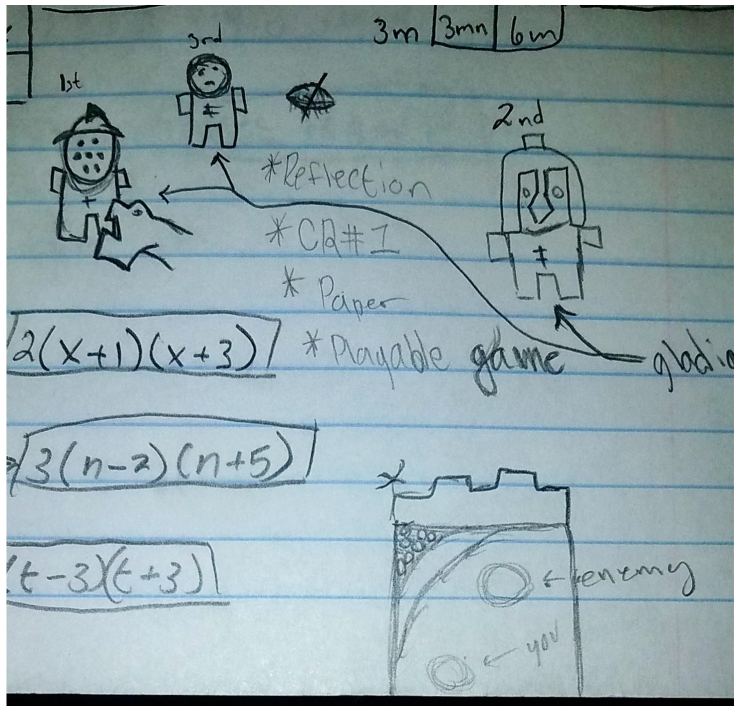 3m 3mn 6m
3rd
1st
2nd
*Reflection
*CR#1
*Paper
*Playable game
gladi
2(x+1)(x+3)
3(n-2)(n+5)
(t-3)(t+3)
enemy
you